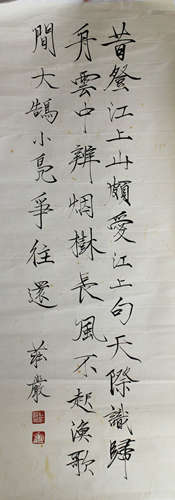 昔登江上山頗愛江上句天際識歸
舟雲中辨烟樹長風不起漁歌
間大鵠小鳧爭往還
莊嚴